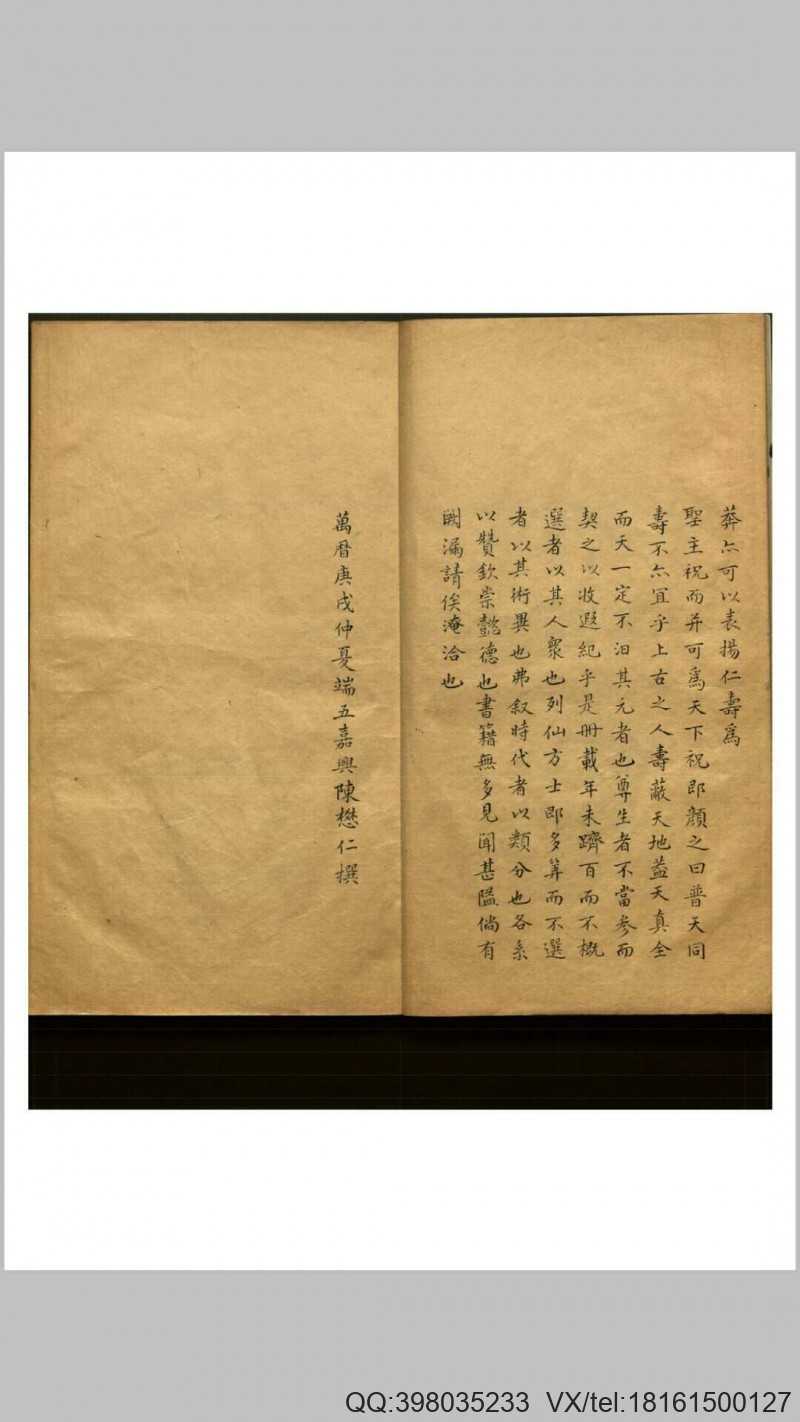 莽亦可以表揚仁壽爲
聖主祝而并可爲天下祝即顏之曰普天同
壽不亦宜乎上古之人壽蔽天地葢天真全
而天一定不汨其元者也尊生者不當參而
契之以收遐紀乎是册載年未躋百而不概
選者以其人衆也列仙方士即多筭而不選
者以其術異也弗叙時代者以類分也各系
以贊欽崇懿德也書籍無多見聞甚隘倘有
闕漏請俟淹洽也
萬曆庚戌仲夏端五嘉興陳懋仁撰
QQ:398035233 VX/tel:18161500127